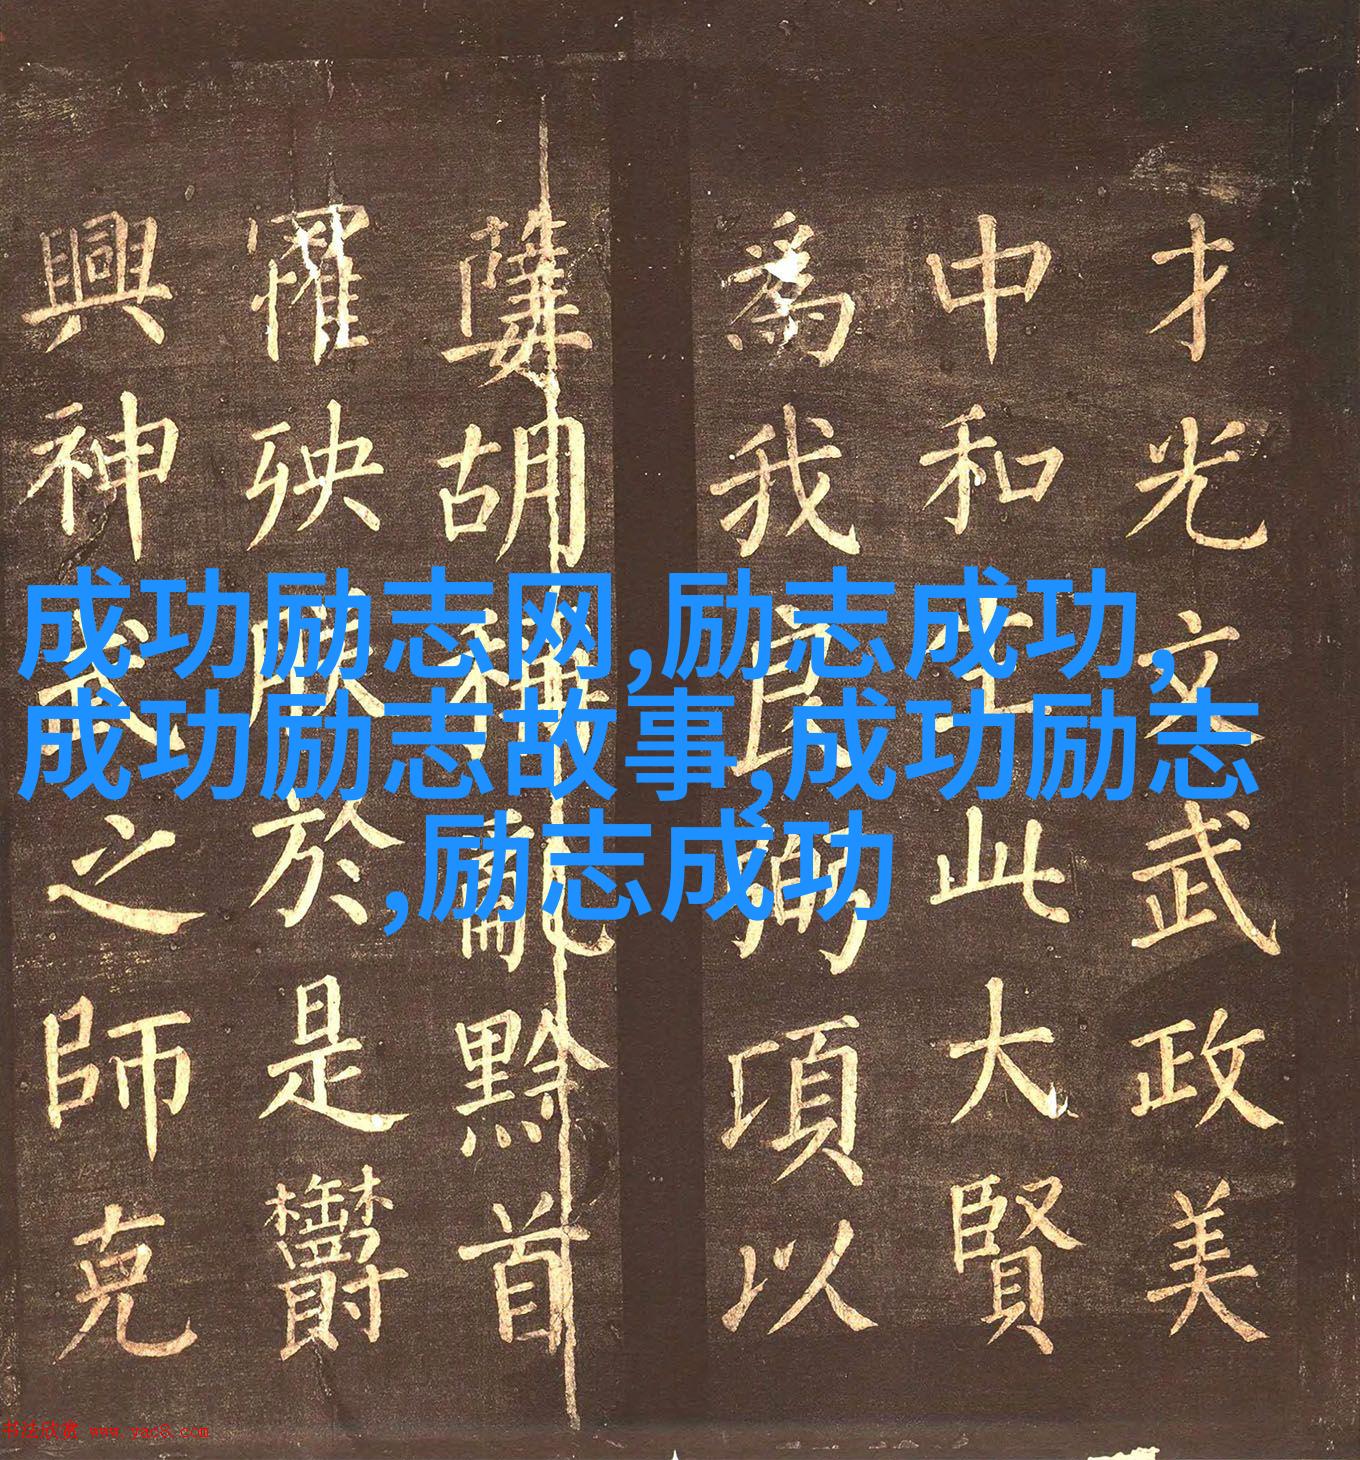 才光文武政美
中和此大賢
為我良弼項以
胡稱亂黔首
罹殃於是
興神武之師克
成功励志网,励志成功,
成功励志故事,成功励志
,励志成功
书法欣赏 www.yac8.com